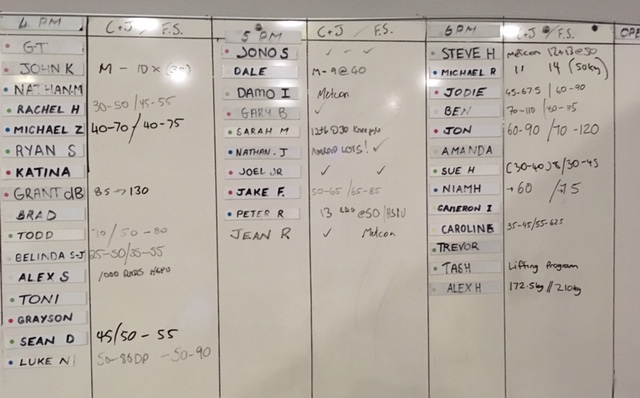 4 PM C+J / F.S.
GT
JOHN K M - 10 x
NATHAN.M
RACHEL H 30-50 / 45-55
MICHAEL Z 40-70 / 40-75
RYAN S
KATINA
GRANT dB 85 → 130
BRAD
TODD / 50 - 80
BELINDA S-J 25-30/35-55
ALEX S 1000
TONI
GRAYSON
SEAN D 45/50 - 55
LUKE N DP - 50-90
5 PM C+J / F.S.
JONO S ✓ - ✓
DALE M-9@40
DAMO I Metcon
GARY B ✓
SARAH M 12th @30
NATHAN.J LOTS! ✓
JOEL JR ✓ ✓
JAKE F. 50-65 / 65-85
PETER R 13 @50 / HSPU
JEAN R ✓ Metcon
6 PM C+J / F.S.
STEVE H Metcon @50
MICHAEL R 11 14 (50kg)
JODIE 45-67.5 / 60-90
BEN 70-110 /
JON 60-90 / 70-120
AMANDA
SUE H (30-40) / 30-45
NIAMH → 60 / 75
CAMERON I
CAROLINE 35-45/55-62.5
TREVOR
TASH Lifting Program
ALEX H 172.5kg // 210kg
OPE